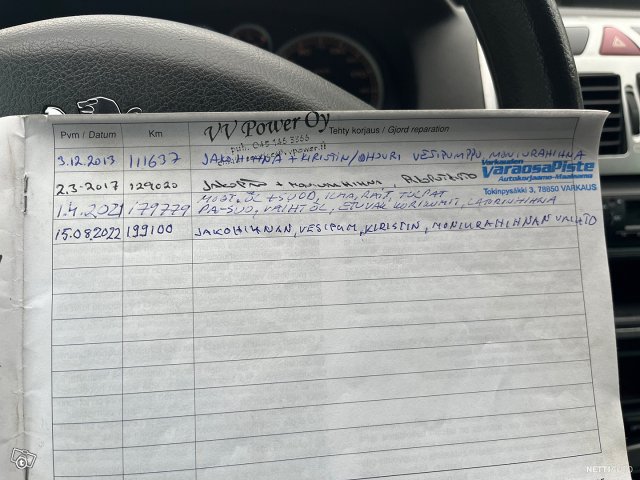 VV Power Oy
Pvm / Datum Km Tehty korjaus / Gjord reparation
puh. 045
3.12.2013 111637 JAKOHIHNA + KIRISTIN/OHJURI VESIPUMPPU MONIURAHIHNA
Varkauden
VaraosaPiste
Autokorjaamo-Maalaamo
Tokinpysäkki 3, 78850 VARKAUS
2.3-2017 129020 MONIURAHIHNA
MOOT.ÖL + SUOD, ILMA, RAIT, TULPAT
1.4.2021 179779 PA-SUO, VAIHT ÖL, ETUVAK KORJ.
15.08.2022 199100 JAKOHIHNAN, VESIPUM, KIRISTIN, MONIURAHIHNAN VAIHTO
NETTIAUTO